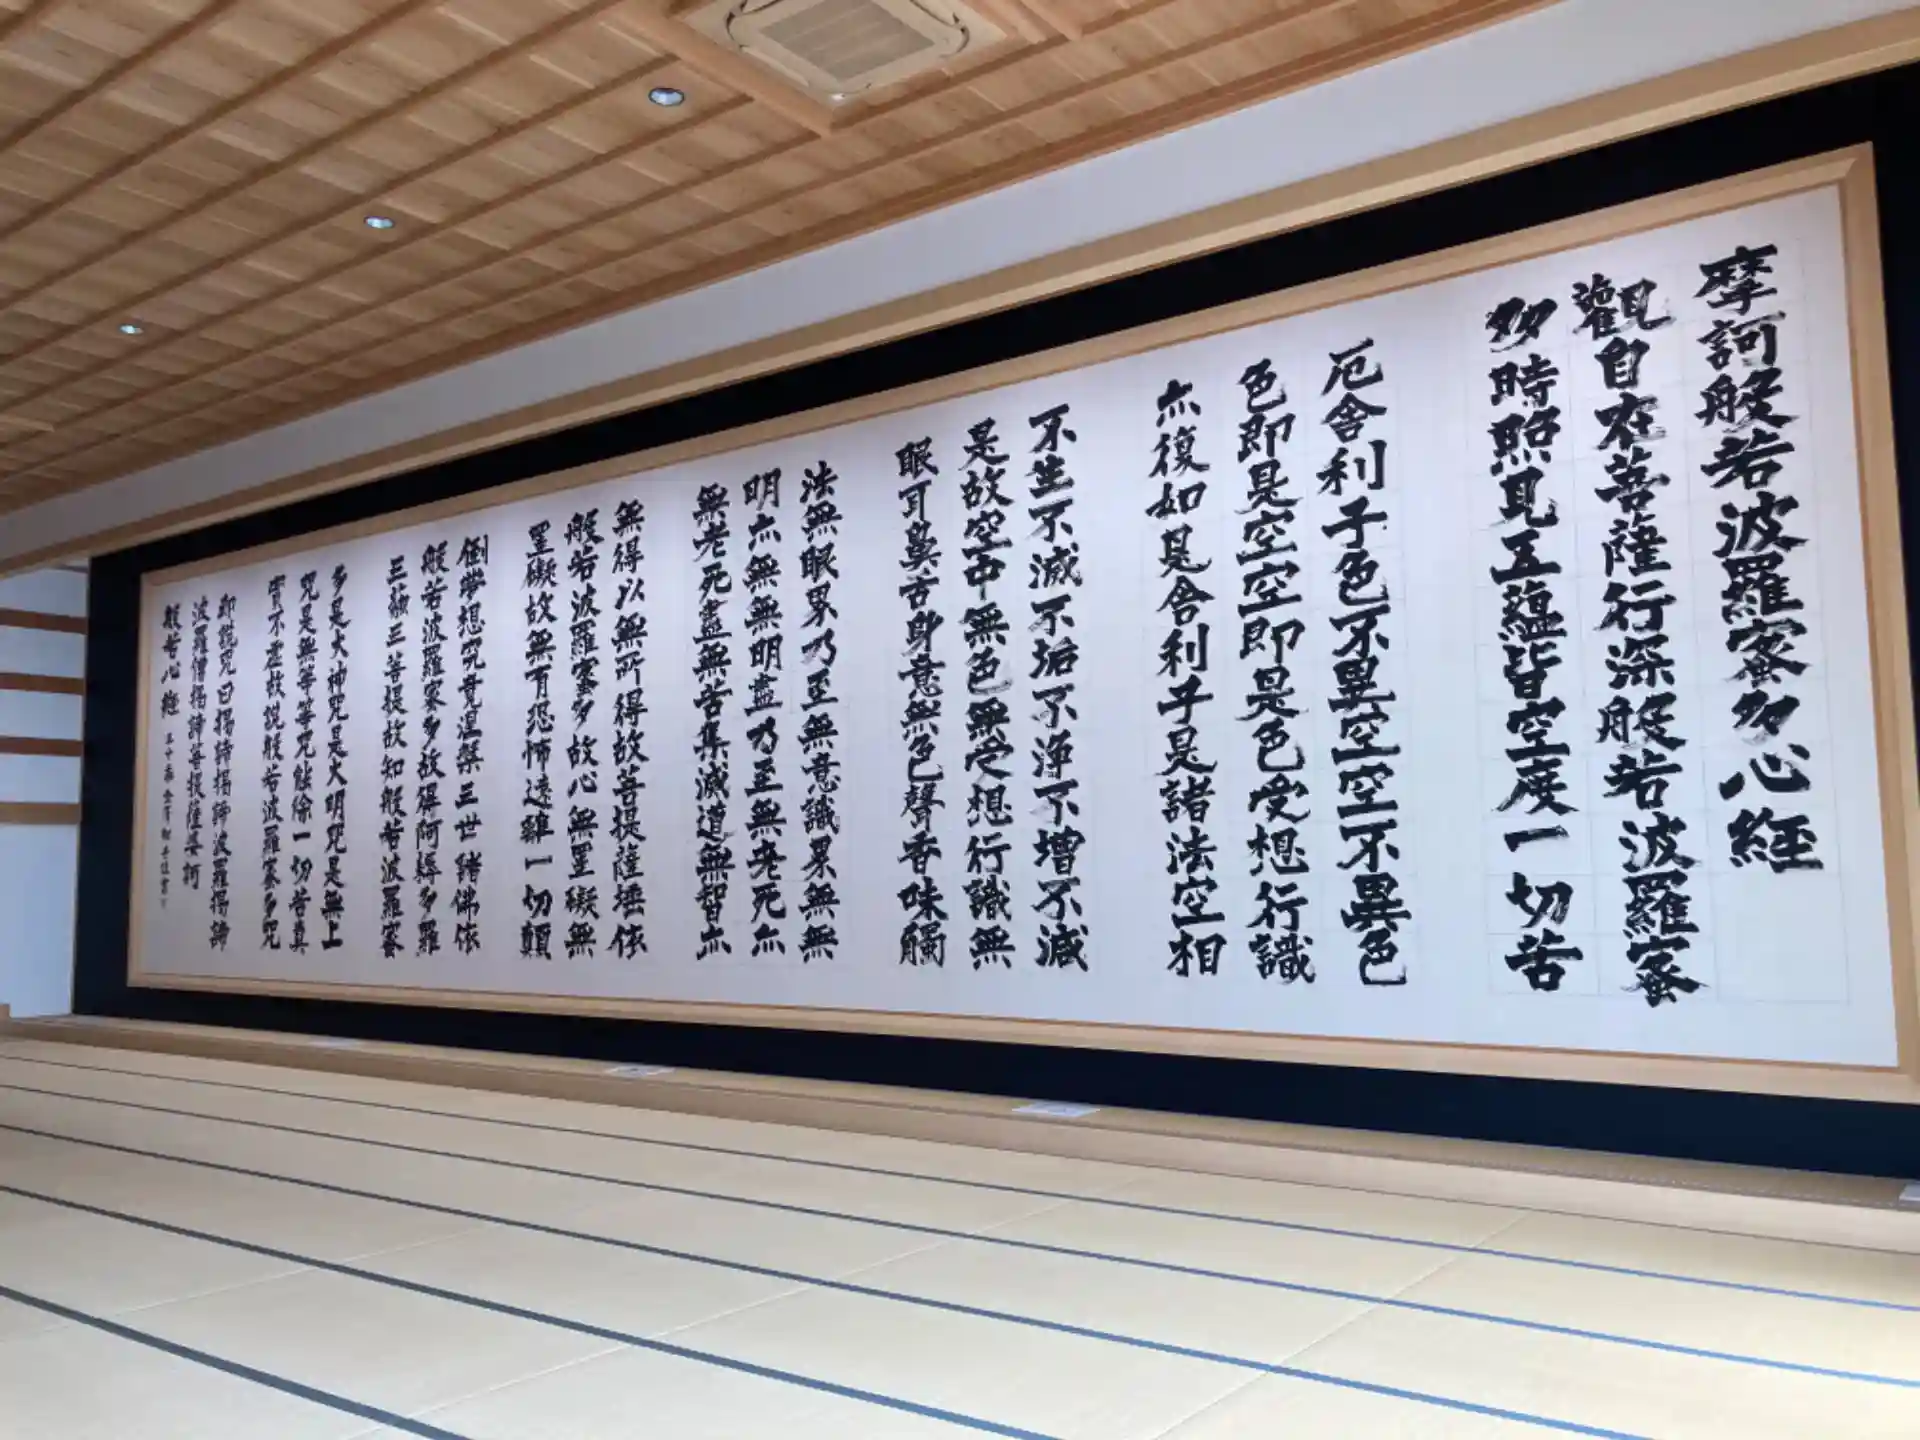 摩訶般若波羅蜜多心経
觀自在菩薩行深般若波羅蜜
多時照見五蘊皆空度一切苦
厄舎利子色不異空空不異色
色即是空空即是色受想行識
亦復如是舎利子是諸法空相
不生不滅不垢不浄不増不減
是故空中無色無受想行識無
眼耳鼻舌身意無色聲香味觸
法無眼界乃至無意識界無無
明亦無無明盡乃至無老死亦
無老死盡無苦集滅道無智亦
無得以無所得故菩提薩埵依
般若波羅蜜多故心無罣礙無
罣礙故無有恐怖遠離一切顛
倒夢想究竟涅槃三世諸佛依
般若波羅蜜多故得阿耨多羅
三藐三菩提故知般若波羅蜜
多是大神咒是大明咒是無上
咒是無等等咒能除一切苦真
實不虚故説般若波羅蜜多咒
即説咒曰掲諦掲諦波羅掲諦
波羅僧掲諦菩提薩婆訶
般若心経